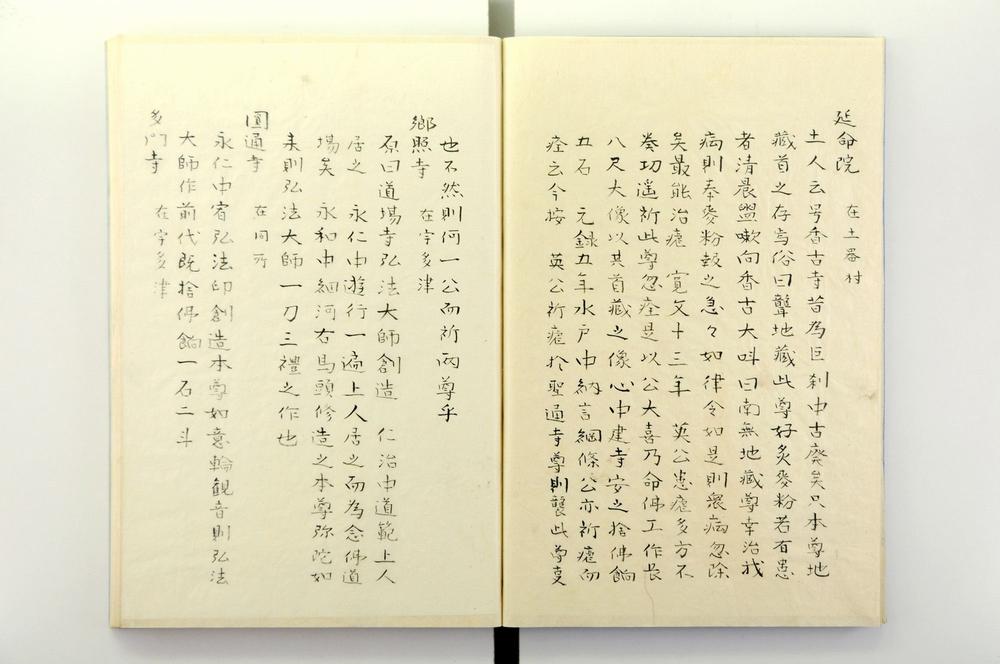 延命院　在土器村
土人云号香古寺昔為巨刹中古廃矣只本尊地
蔵首之存焉俗曰聾地蔵此尊好炙麥粉若有患
者清晨盥嗽向香古大呌曰南無地蔵尊幸治我
病則奉麥粉報之急々如律令如是則衆病忽除
矣最能治瘧　寛文十三年　英公患瘧多方不
奏功遥祈此尊忽痊是以公大喜乃命佛工作長
八尺大像以其首蔵之像心中建寺安之捨佛餉
五石　元録五年水戸中納言綱條公亦祈瘧而
痊云今按　英公祈瘧於聖通寺尊則襲此尊叓
也不然則何一公而祈両尊乎
郷照寺　在宇多津
原曰道場寺弘法大師創造　仁治中道範上人
居之　永仁中遊行一遍上人居之而為念佛道
場矣　永和中細河右馬頭修造之本尊弥陀如
来則弘法大師一刀三禮之作也
圓通寺　在同所
永仁中宥弘法印創造本尊如意輪観音則弘法
大師作前代既捨佛餉一石二斗
多門寺　在宇多津